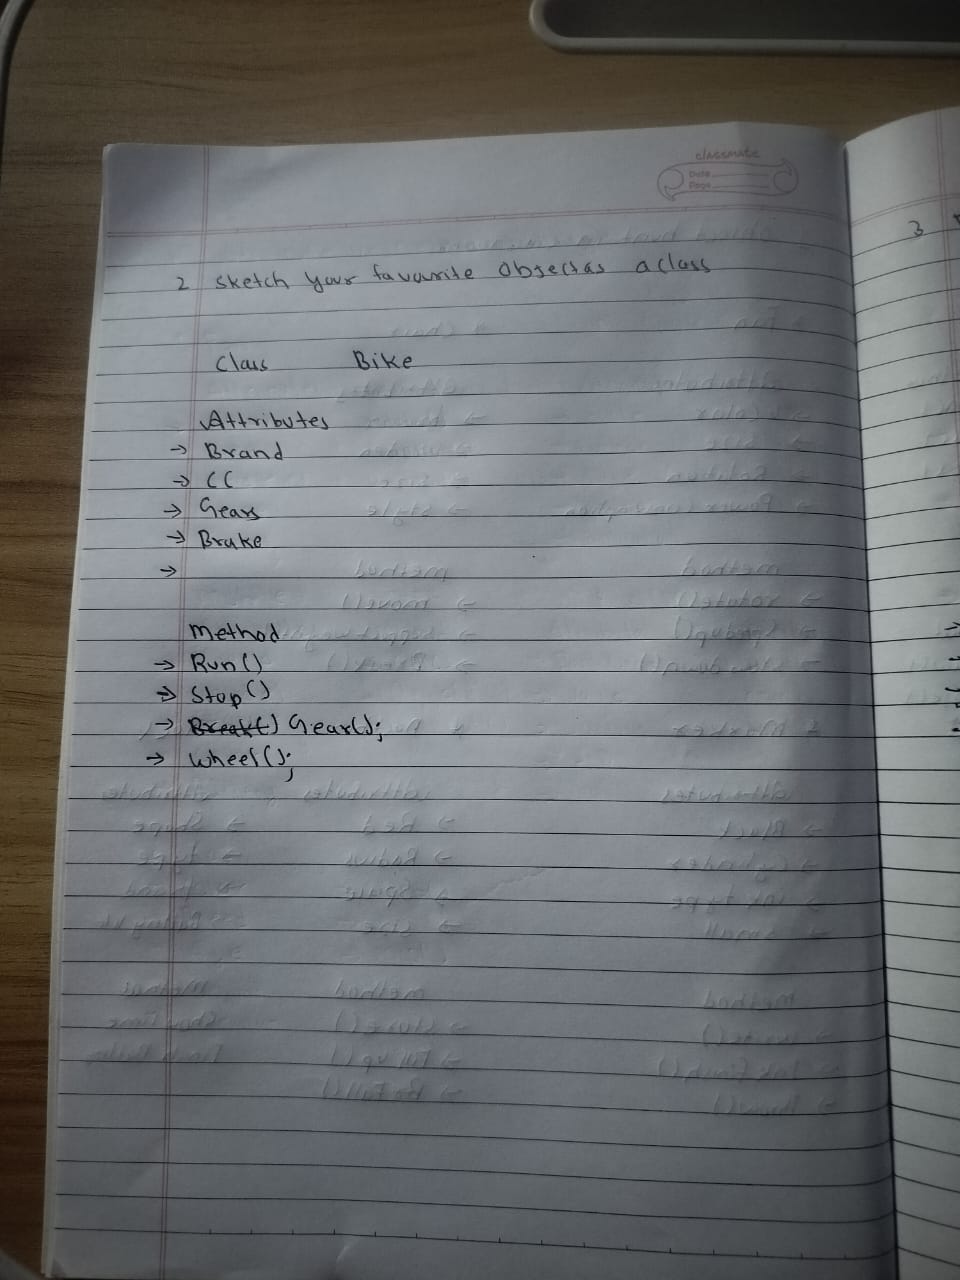 classmate
Date
Page
2 Sketch your favourite Objectas a class
Class Bike
Attributes
→ Brand
→ CC
→ Gears
→ Brake
→
Method
→ Run()
→ Stop()
→ Break() Gear();
→ Wheel();
3